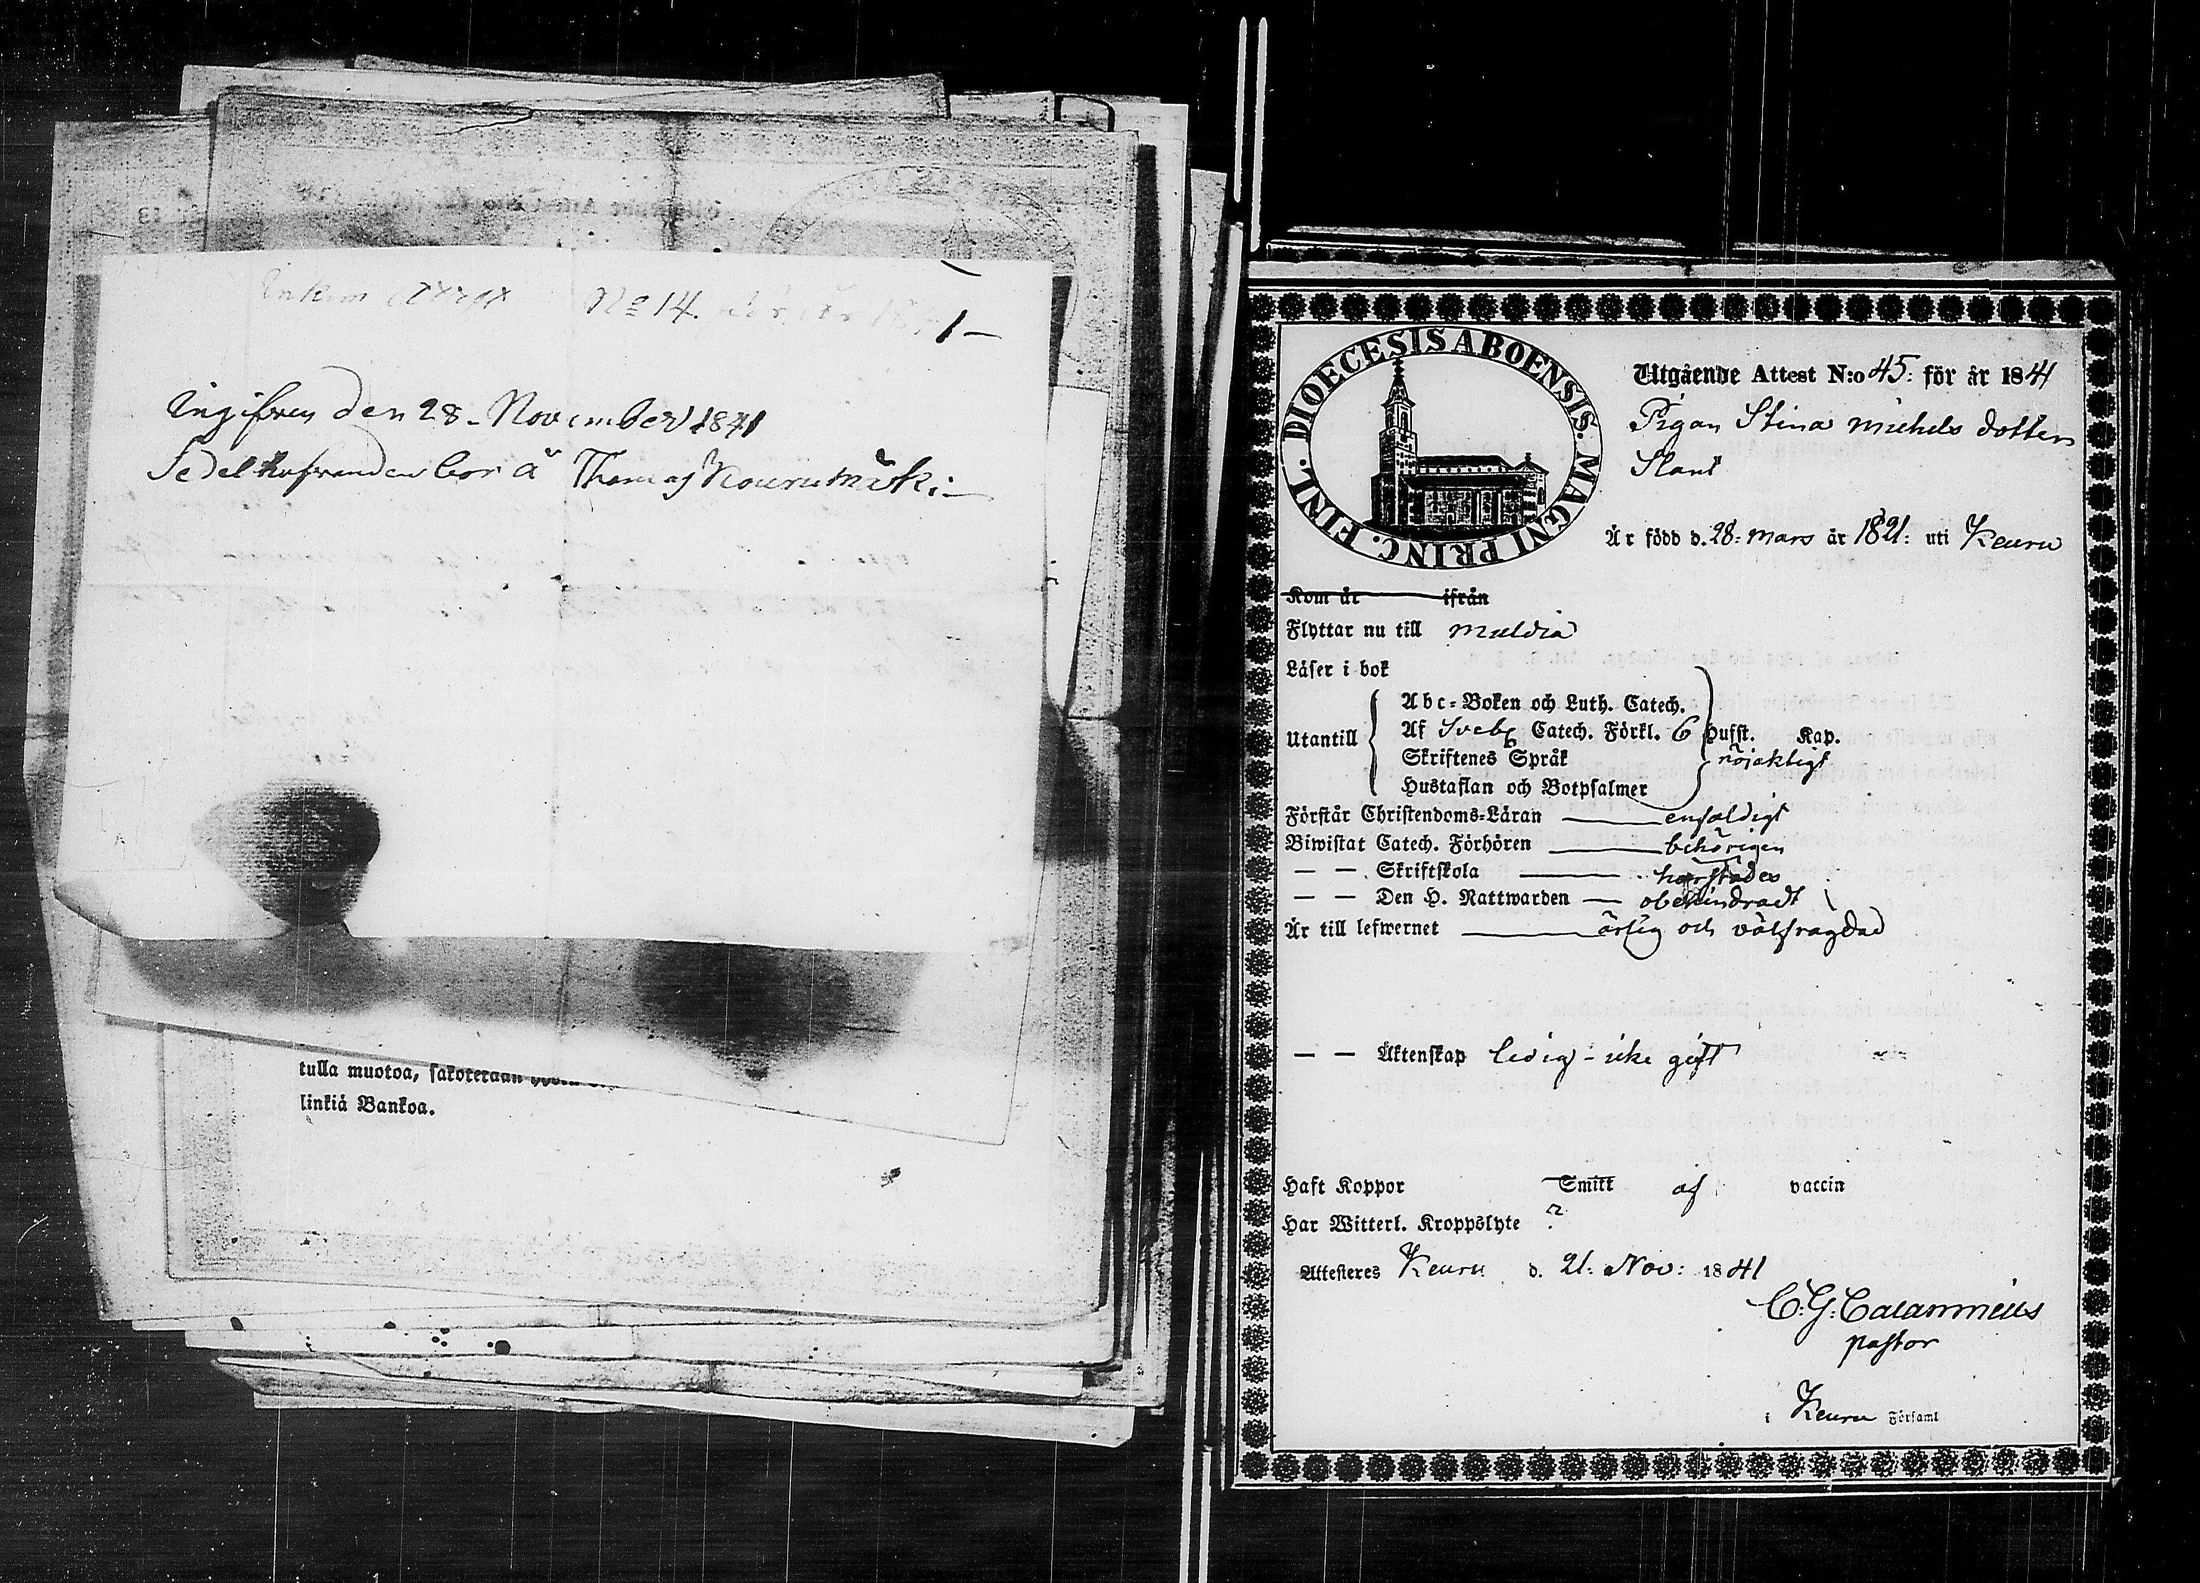 No 14.
Ingifven den 28 November 1841
Sedelhafvanden bor å Thomas Kourumäki
tulla muotoa, sakotetaan
linkiä Bankoa.
DIOECESIS ABOENSIS. MAGNI PRINC. FINL.
Utgående Attest N:o 45: för år 1841
Pigan Stina Michels dotter
Slant
Är född d. 28: mars år 1821: uti Keuru
Kom år ifrån
Flyttar nu till Muldia
Läser i bok
Abc-Boken och Luth. Catech.
Utantill Af Sveb Catech. Förkl. 6 Hufst. Kap.
Skriftenes Språk nöjaktigt
Hustaflan och Botpsalmer
Förstår Christendoms-Läran enfaldigt
Biwistat Catech. Förhören behörigen
— — Skriftskola härstädes
— — Den H. Nattwarden — obehindradt
Är till lefwernet ärlig och välfrägdad
— — Äktenskap ledig - icke gift
Haft Koppor Smitt af vaccin
Har Witterl. Kroppslyte ?
Attesteres Keuru d. 21: Nov: 1841
C: G: Calamnius
pastor
i Keuru Församl